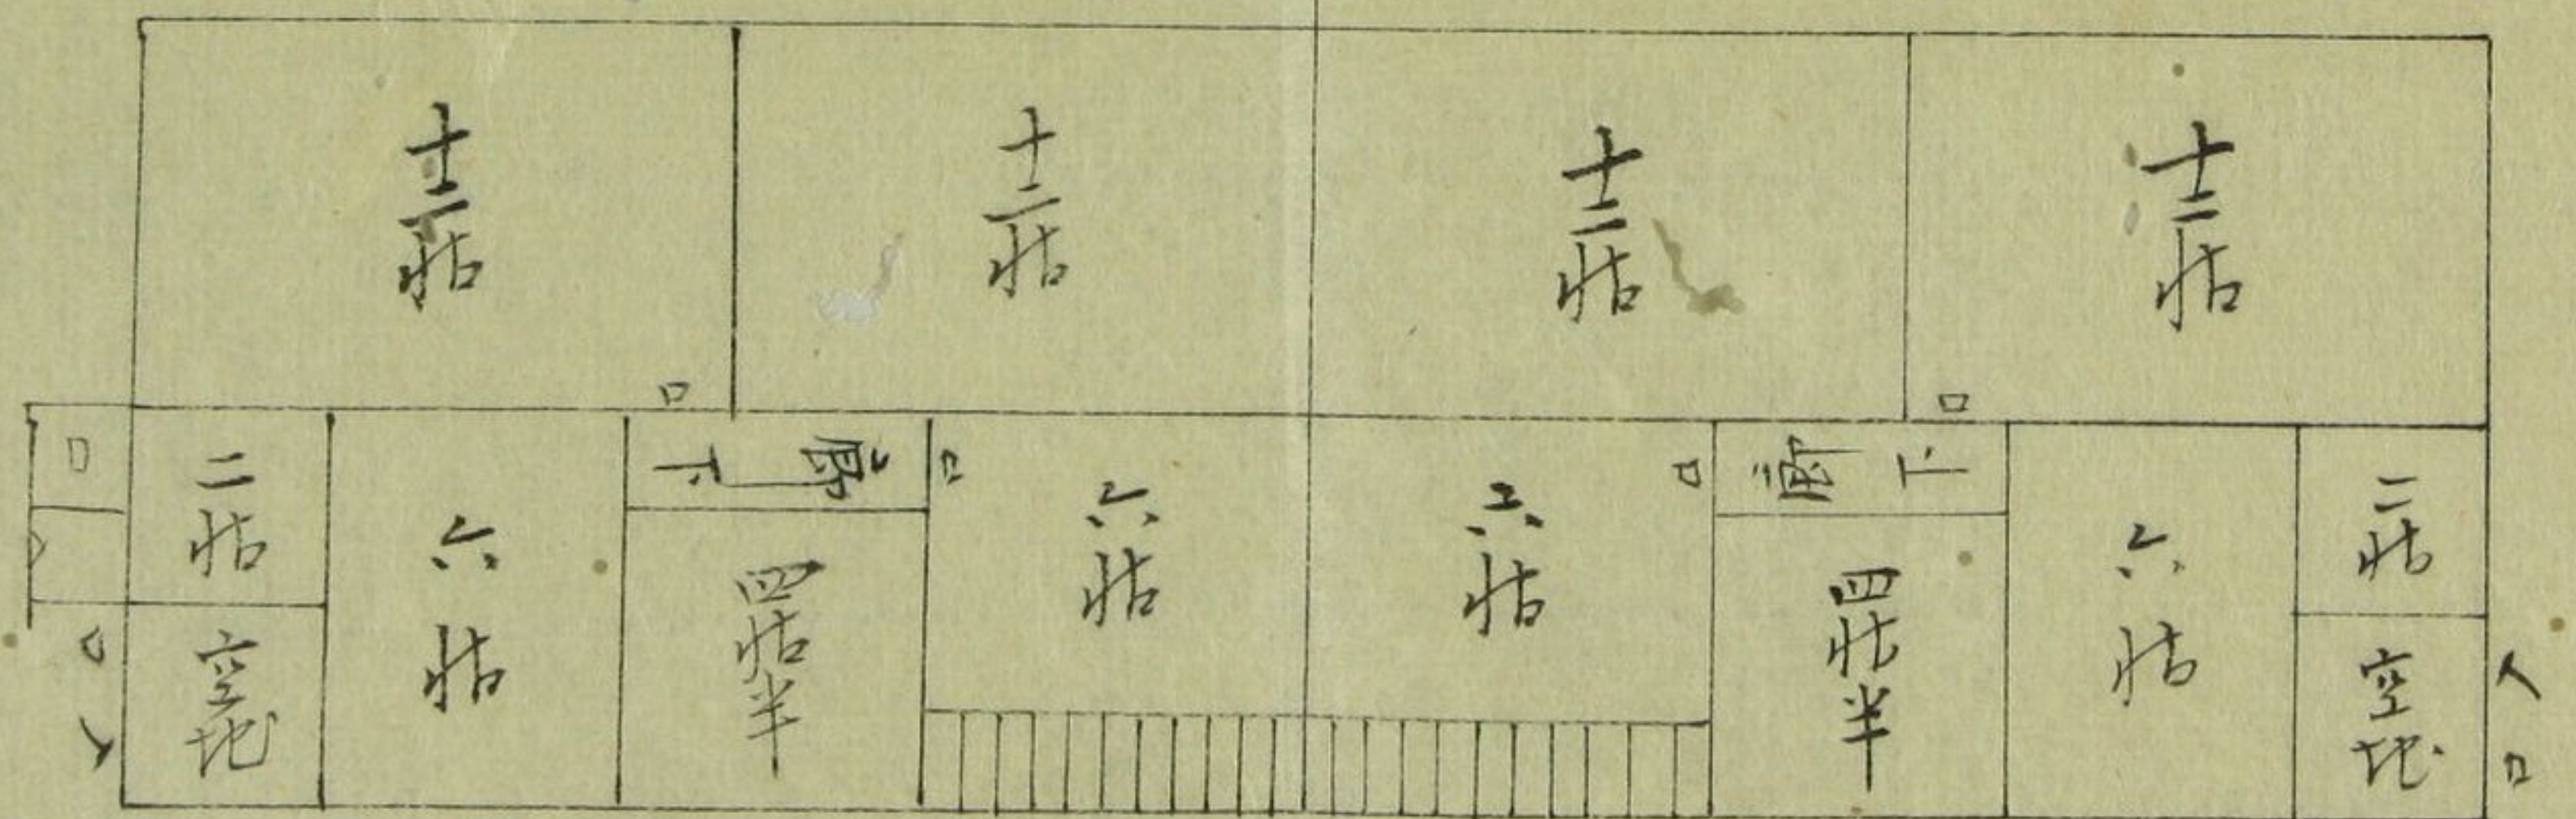 十二帖
十二帖
十二帖
十二帖
口
口
口
二帖
六帖
廊下
口
六帖
六帖
口
廊下
六帖
二帖
四帖半
四帖半
入口
空地
空地
入口